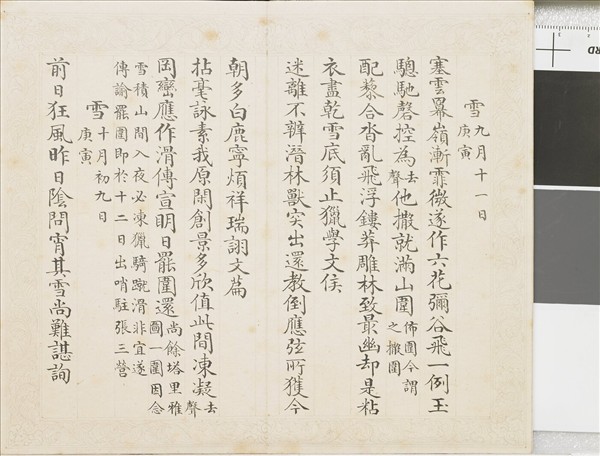 雪九月十一日
庚寅
塞雲羃嶺漸霏微遂作六花彌谷飛一例玉
驄馳磬控為去聲他撒就滿山圍佈圍今謂之撒圍
配藜合沓亂飛浮鏤莽雕林致最幽却是粘
衣盡乾雪底須止獵學文侯
迷離不辨潛林獸突出還教倒應弦所獲今
朝多白鹿寧煩祥瑞詡文篇
拈毫詠素我原閑創景多欣值此間凍凝去聲
岡巒應作滑傳宣明日罷圍還尚餘塔里雅圖一圍因念
雪積山間入夜必凍獵騎蹴滑非宜遂
傳諭罷圍即於十二日出哨駐張三營
雪十月初九日
庚寅
前日狂風昨日陰問宵其雪尚難諶詢
3